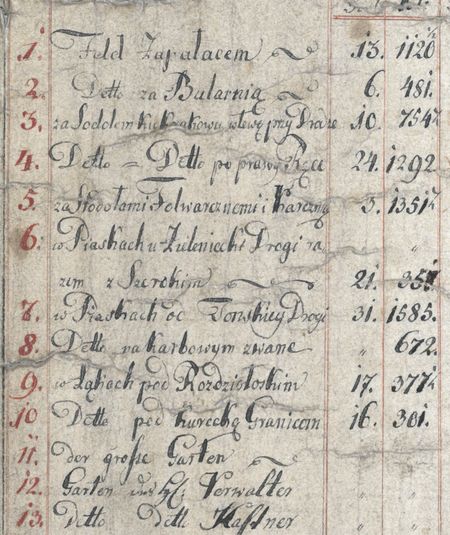 1. Feld Zapalacem 13. 1120
2. Detto za Bularnią 6. 481.
3. za Sodolem ku Krakowu wlewę przy Drodze 10. 754½
4. Detto = Detto po prawy Ręce 24. 1292
5. za Stodołami Folwarcznemi i Karczmą 3. 1351½
6. w Piaskach u Zuleniecki Drogi ra „
zem z Szerokim 21. 351
7. w Piaskach od Drogi 31. 1585.
8. Detto na karbowym zwane „ 672.
9. w Łąkach pod 17. 377½
10 Detto pod Kurecką Granicom 16. 301.
11. der grosse Garten „ „
12. Garten des H: Verwalter „ „
13. Detto Detto Kastner „ „